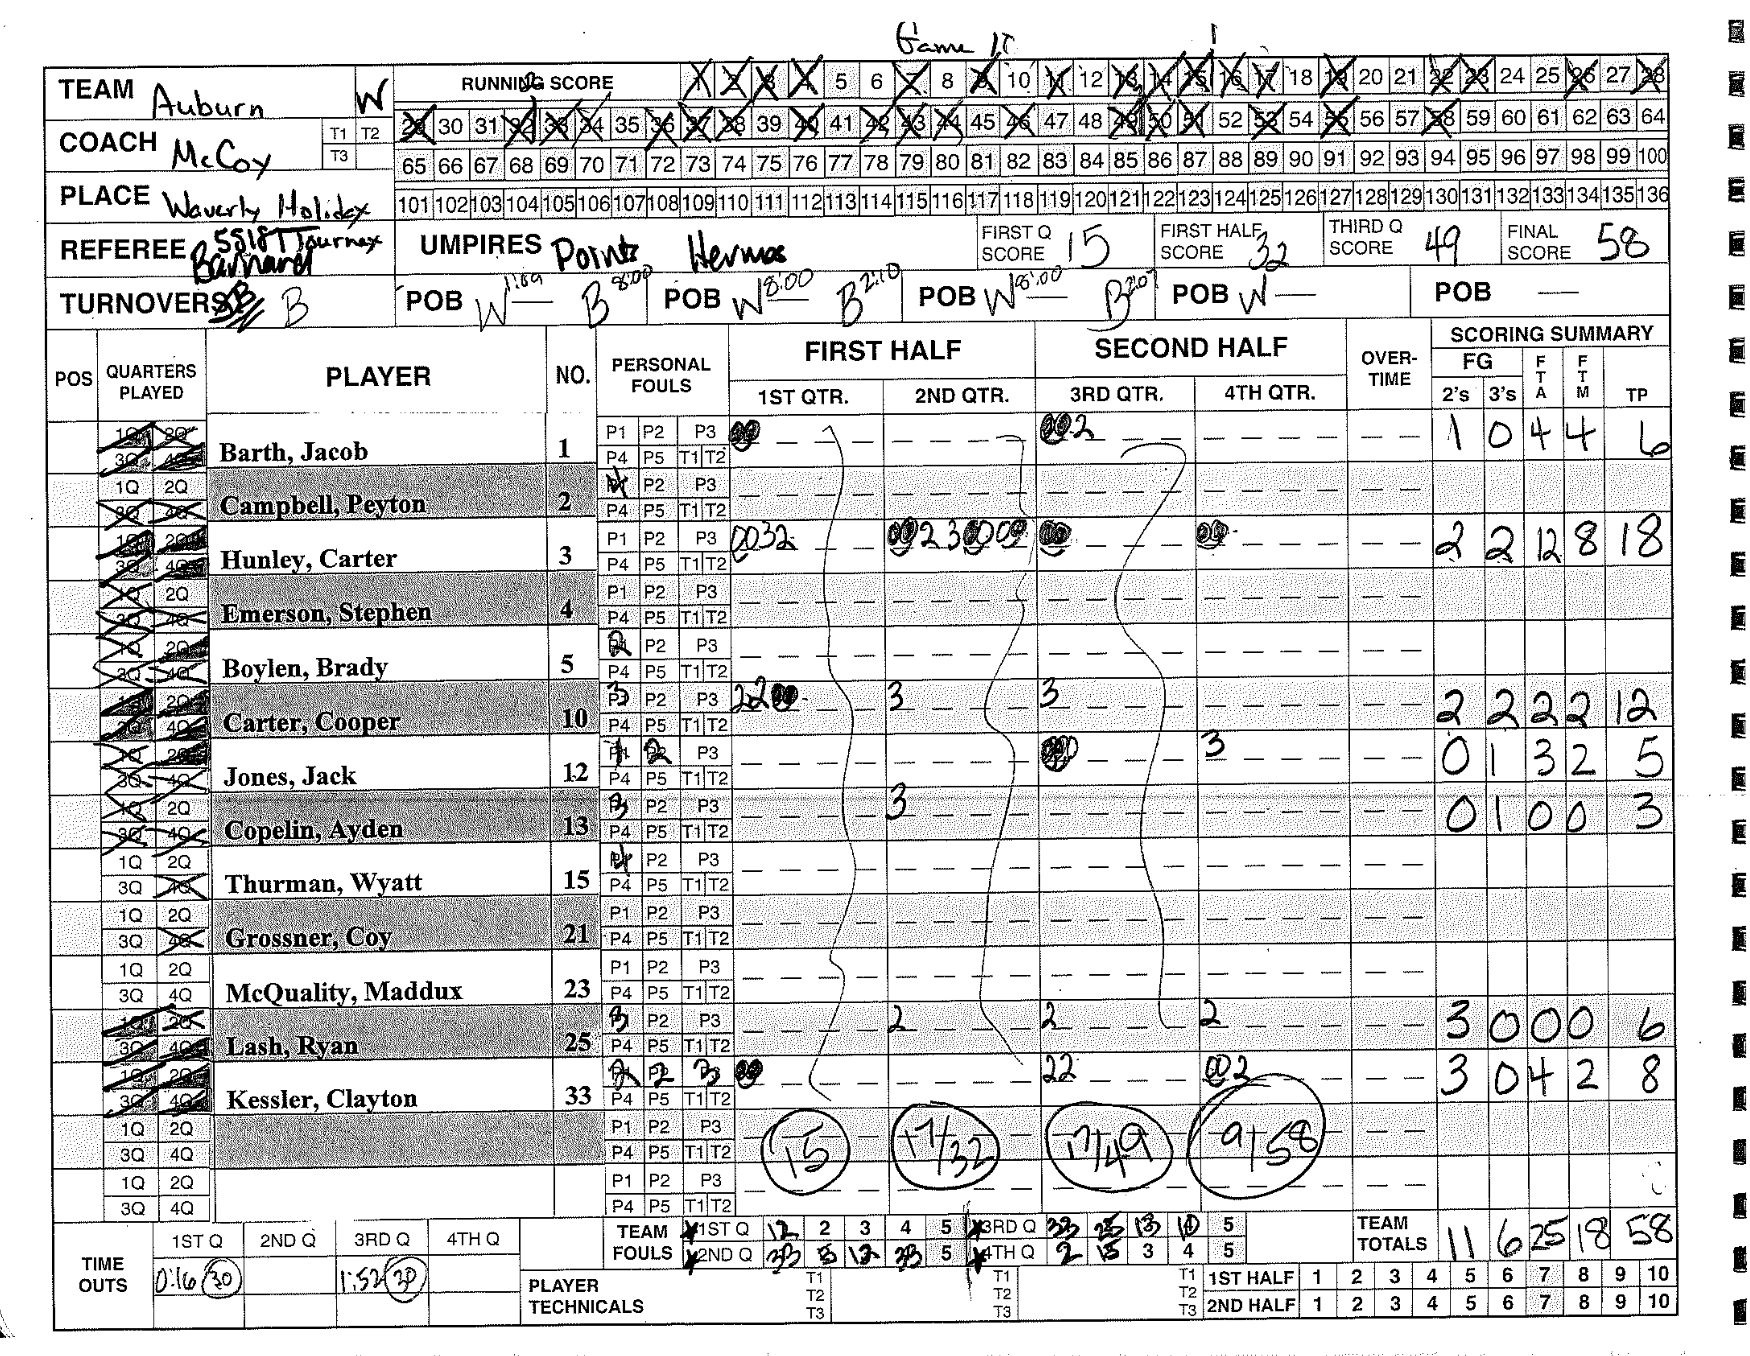 Game 15
TEAM Auburn W RUNNING SCORE 1 2 3 4 5 6 7 8 9 10 11 12 13 14 15 16 17 18 19 20 21 22 23 24 25 26 27 28
29 30 31 32 33 34 35 36 37 38 39 40 41 42 43 44 45 46 47 48 49 50 51 52 53 54 55 56 57 58 59 60 61 62 63 64
COACH McCoy T1 T2 T3
65 66 67 68 69 70 71 72 73 74 75 76 77 78 79 80 81 82 83 84 85 86 87 88 89 90 91 92 93 94 95 96 97 98 99 100
PLACE Waverly Holiday
101 102 103 104 105 106 107 108 109 110 111 112 113 114 115 116 117 118 119 120 121 122 123 124 125 126 127 128 129 130 131 132 133 134 135 136
REFEREE Barnard UMPIRES Points Hermes FIRST Q SCORE 15 FIRST HALF SCORE 32 THIRD Q SCORE 49 FINAL SCORE 58
TURNOVERS B POB W B 8:00 POB W 8:00 B 2:10 POB W 8:00 B POB W — POB —
POS QUARTERS PLAYED PLAYER NO. PERSONAL FOULS FIRST HALF SECOND HALF OVER-TIME SCORING SUMMARY
1ST QTR. 2ND QTR. 3RD QTR. 4TH QTR. FG 2's 3's FTA FTM TP
1Q 2Q 3Q 4Q Barth, Jacob 1 P1 P2 P3 P4 P5 T1 T2 2 1 0 4 4 6
1Q 2Q 3Q 4Q Campbell, Peyton 2 P1 P2 P3 P4 P5 T1 T2
1Q 2Q 3Q 4Q Hunley, Carter 3 P1 P2 P3 P4 P5 T1 T2 0032 2 2 12 8 18
1Q 2Q 3Q 4Q Emerson, Stephen 4 P1 P2 P3 P4 P5 T1 T2
1Q 2Q 3Q 4Q Boylen, Brady 5 2 P2 P3 P4 P5 T1 T2
1Q 2Q 3Q 4Q Carter, Cooper 10 3 P2 P3 P4 P5 T1 T2 22 3 3 2 2 2 2 12
1Q 2Q 3Q 4Q Jones, Jack 12 1 2 P3 P4 P5 T1 T2 3 0 1 3 2 5
1Q 2Q 3Q 4Q Copelin, Ayden 13 3 P2 P3 P4 P5 T1 T2 3 0 1 0 0 3
1Q 2Q 3Q 4Q Thurman, Wyatt 15 4 P2 P3 P4 P5 T1 T2
1Q 2Q 3Q 4Q Grossner, Coy 21 P1 P2 P3 P4 P5 T1 T2
1Q 2Q 3Q 4Q McQuality, Maddux 23 P1 P2 P3 P4 P5 T1 T2
1Q 2Q 3Q 4Q Lash, Ryan 25 3 P2 P3 P4 P5 T1 T2 2 2 2 3 0 0 0 6
1Q 2Q 3Q 4Q Kessler, Clayton 33 2 2 3 P4 P5 T1 T2 22 2 3 0 4 2 8
1Q 2Q 3Q 4Q P1 P2 P3 P4 P5 T1 T2 15 17/32 17/49 9/58
1Q 2Q 3Q 4Q P1 P2 P3 P4 P5 T1 T2
TIME OUTS 1ST Q 2ND Q 3RD Q 4TH Q
0:16 30 1:52 30
TEAM FOULS 1ST Q 12 2 3 4 5 3RD Q 33 25 13 10 5
2ND Q 33 5 12 33 5 4TH Q 2 15 3 4 5
TEAM TOTALS 11 6 25 18 58
PLAYER TECHNICALS T1 T2 T3 T1 T2 T3 T1 T2 T3
1ST HALF 1 2 3 4 5 6 7 8 9 10
2ND HALF 1 2 3 4 5 6 7 8 9 10